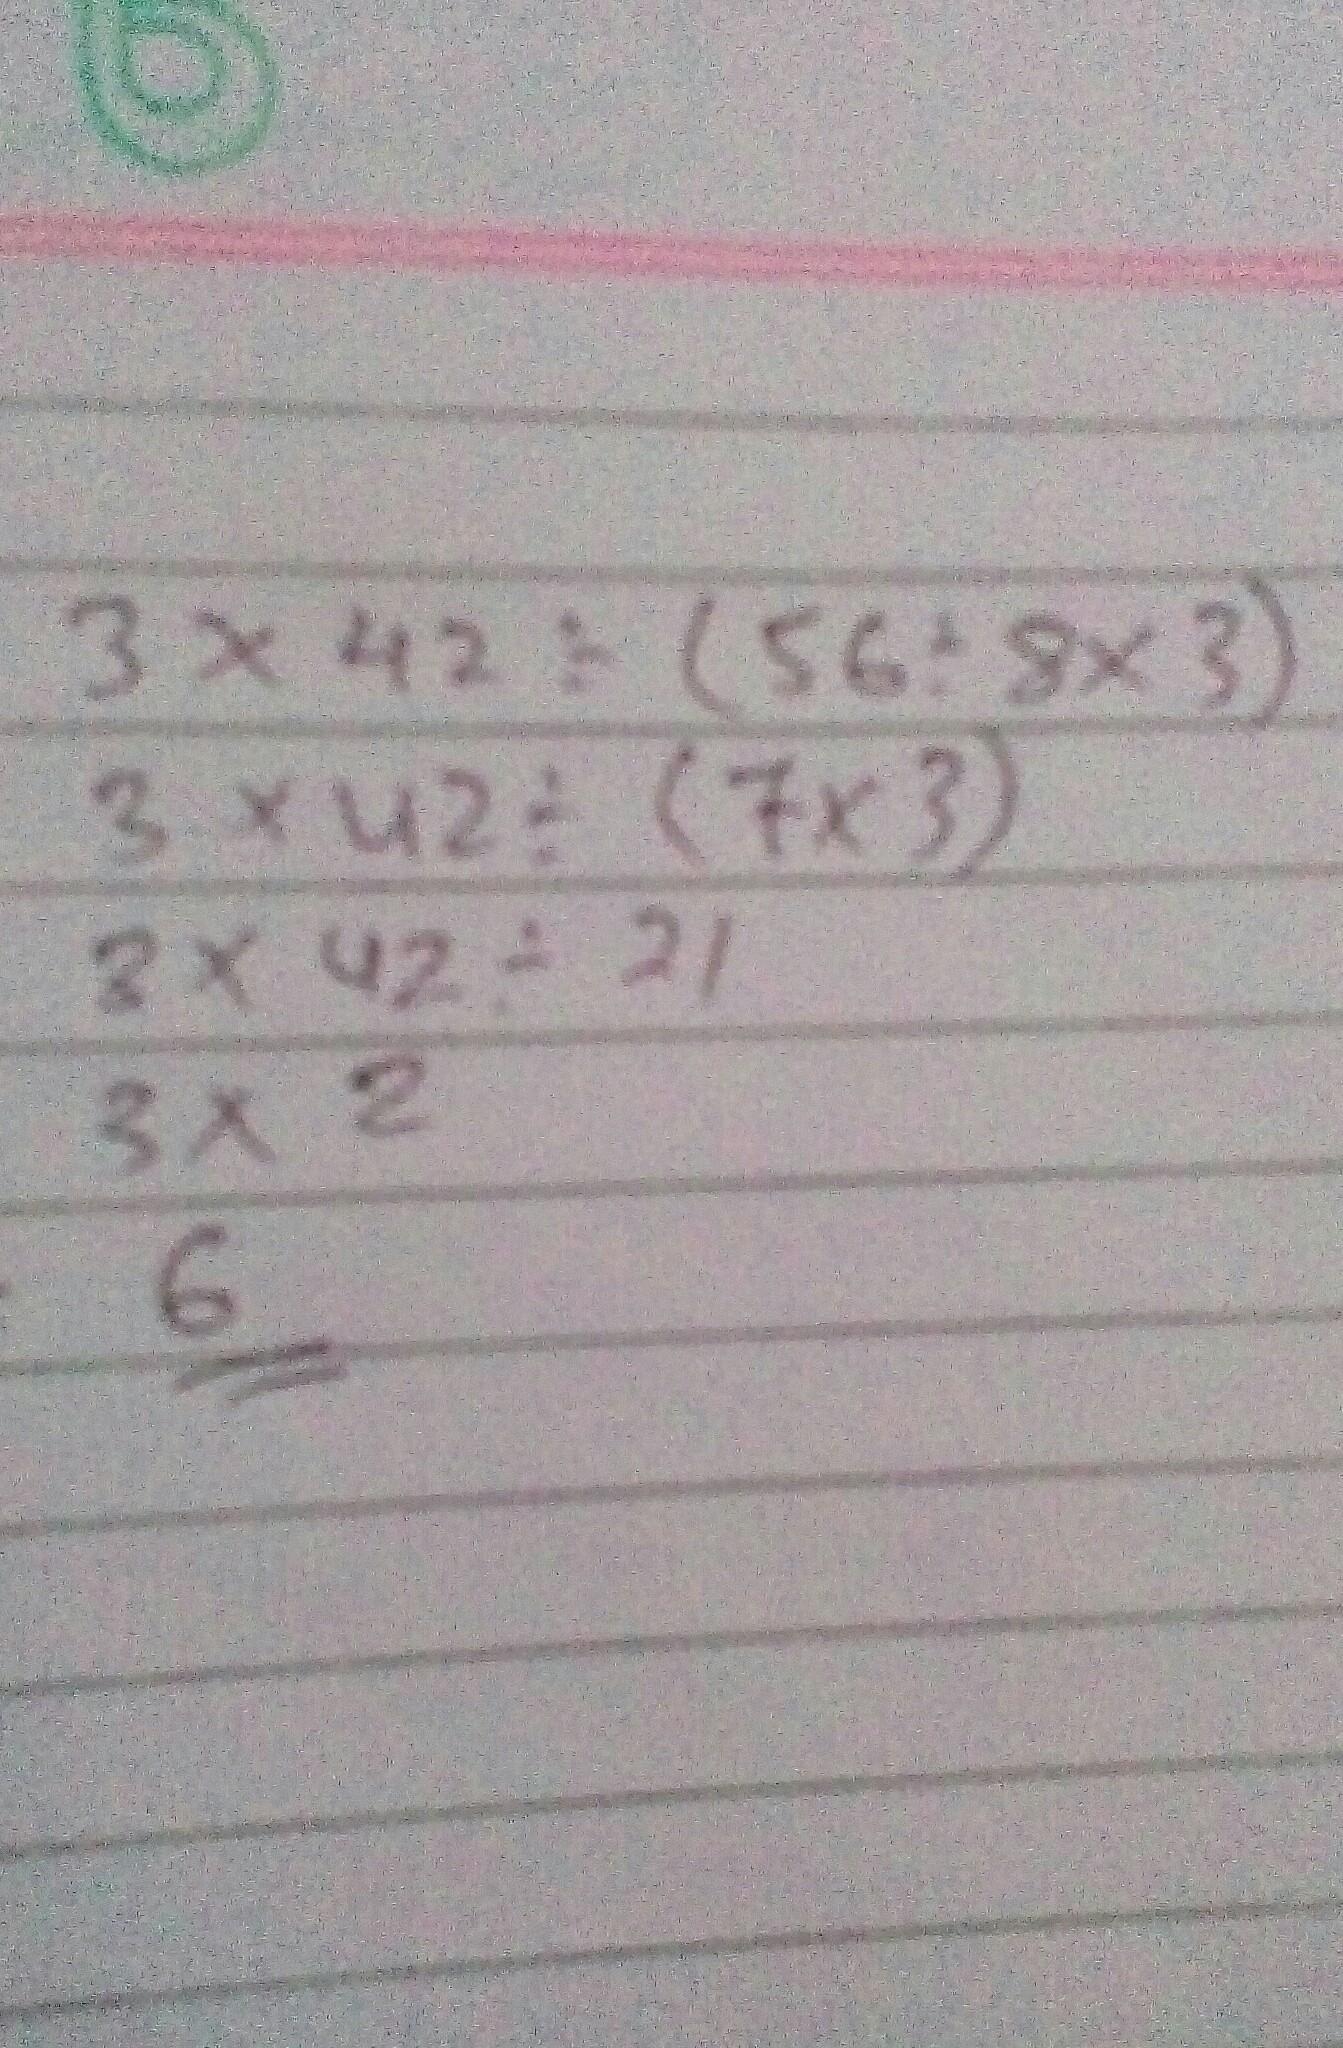 6
3 × 42 ÷ (56 ÷ 8 × 3)
3 × 42 ÷ (7 × 3)
3 × 42 ÷ 21
3 × 2
6